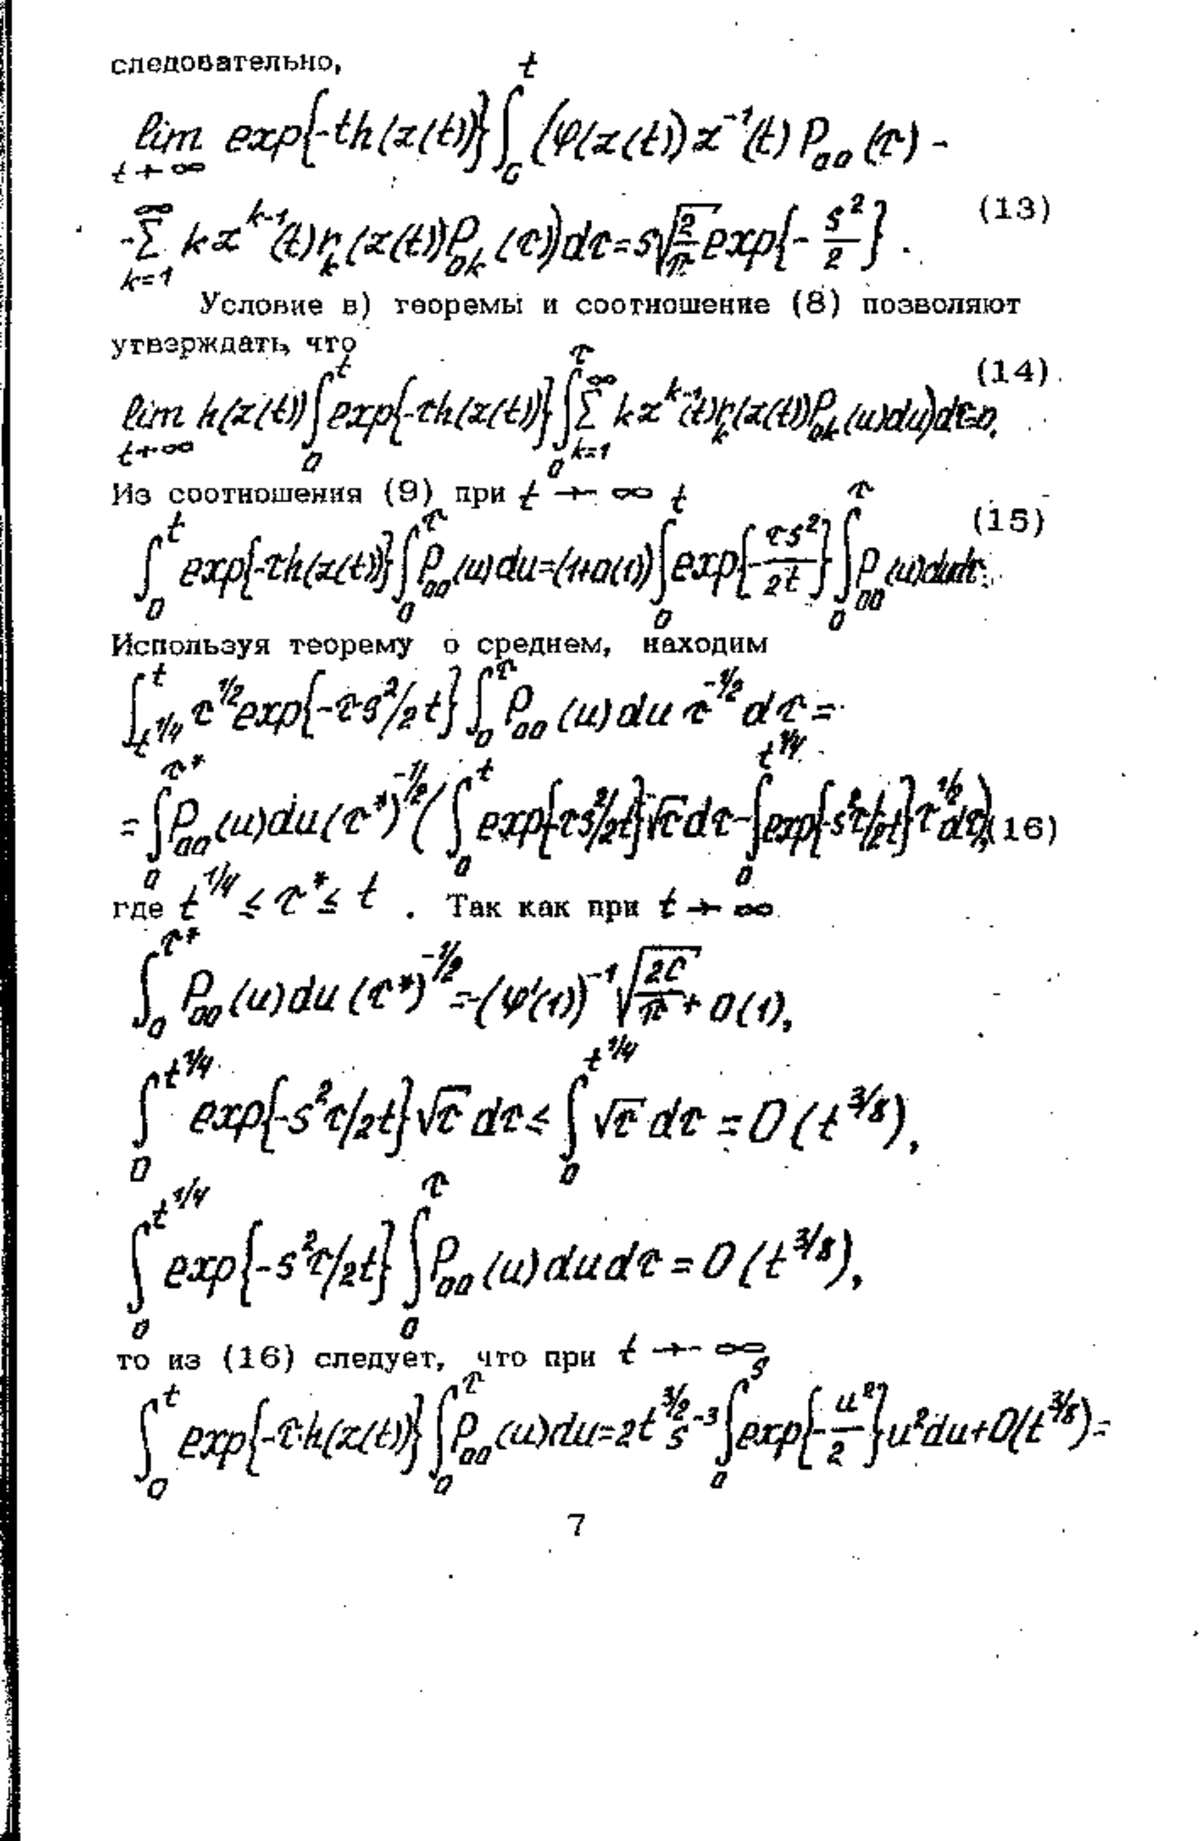 следовательно,
lim_{t→∞} exp{-th(z(t))} ∫_0^t (φ(z(t)) z^{-1}(t) P_{00}(τ) -
-∑_{k=1}^∞ kz^{k-1}(t) r_k(z(t)) P_{0k}(τ)) dτ = s√(2/π) exp{- s²/2} . (13)
Условие в) теоремы и соотношение (8) позволяют
утверждать, что
lim_{t→∞} h(z(t)) ∫_0^t exp{-τh(z(t))} ∫_0^τ ∑_{k=1}^∞ kz^{k-1}(t) r_k(z(t)) P_{0k}(u)du) dτ=0, (14)
Из соотношения (9) при t → ∞
∫_0^t exp{-τh(z(t))} ∫_0^τ P_{00}(u)du=(1+o(1)) ∫_0^t exp{- τs²/2t} ∫_0^τ P_{00}(u)dudτ. (15)
Используя теорему о среднем, находим
∫_{t^{1/4}}^t τ^{1/2} exp{-τs²/2t} ∫_0^τ P_{00}(u)du τ^{-1/2} dτ =
= ∫_0^{τ*} P_{00}(u)du(τ*)^{-1/2} ( ∫_0^t exp{-τs²/2t} √τ dτ - ∫_0^{t^{1/4}} exp{-s²τ/2t} τ^{1/2} dτ), (16)
где t^{1/4} ≤ τ* ≤ t . Так как при t → ∞
∫_0^{τ*} P_{00}(u)du (τ*)^{-1/2} = -(φ'(1))^{-1} √(2C/π) + o(1),
∫_0^{t^{1/4}} exp{-s²τ/2t} √τ dτ ≤ ∫_0^{t^{1/4}} √τ dτ = O(t^{3/8}),
∫_0^{t^{1/4}} exp{-s²τ/2t} ∫_0^τ P_{00}(u)dudτ = O(t^{3/8}),
то из (16) следует, что при t → ∞
∫_0^t exp{-τh(z(t))} ∫_0^τ P_{00}(u)du=2t^{3/2} s^{-3} ∫_0^s exp{- u²/2} u²du+O(t^{3/8}) =
7